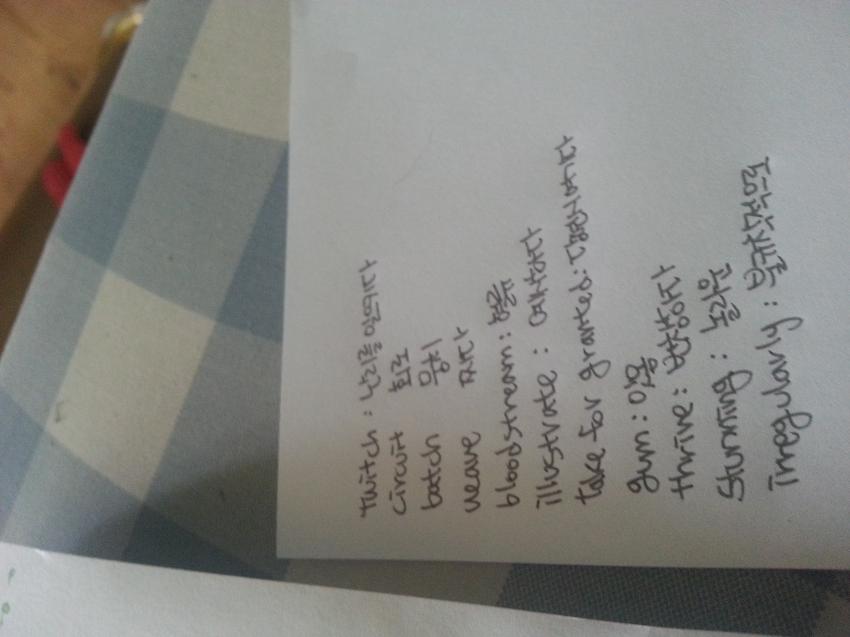 twitch :
circuit 회로
batch 뭉치
weave 짜다
bloodstream : 혈류
illustrate :
take for granted : 당연시 여기다
gum : 잇몸
thrive : 번창하다
stunning : 놀라운
irregularly :